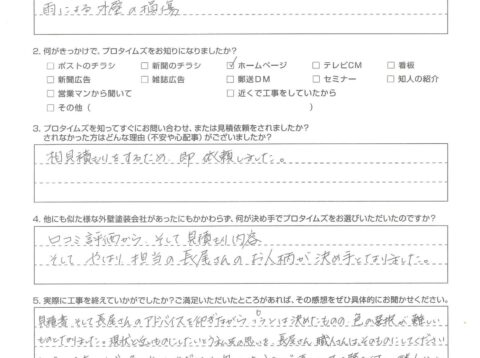 雨による外壁の損傷
2. 何がきっかけで、プロタイムズをお知りになりましたか?
□ ポストのチラシ □ 新聞のチラシ ☑ ホームページ □ テレビCM □ 看板
□ 新聞広告 □ 雑誌広告 □ 郵送DM □ セミナー □ 知人の紹介
□ 営業マンから聞いて □ 近くで工事をしていたから
□ その他 ( )
3. プロタイムズを知ってすぐにお問い合わせ、または見積依頼をされましたか?
されなかった方はどんな理由 (不安や心配事) がございましたか?
相見積もりをするため、即 依頼しました。
4. 他にも似た様な外壁塗装会社があったにもかかわらず、何が決め手でプロタイムズをお選びいただいたのですか?
口コミ評価から、そして見積もり内容
そして やはり 担当の長尾さんのお人柄が 決め手となりました。
5. 実際に工事を終えていかがでしたか? ご満足いただいたところがあれば、その感想をぜひ具体的にお聞かせください。
長尾さんのアドバイスを仰ぎながら 決めたものの 色の選択が難しい
ものとなりました。 長尾さん 職人さんは、そのものズバリ